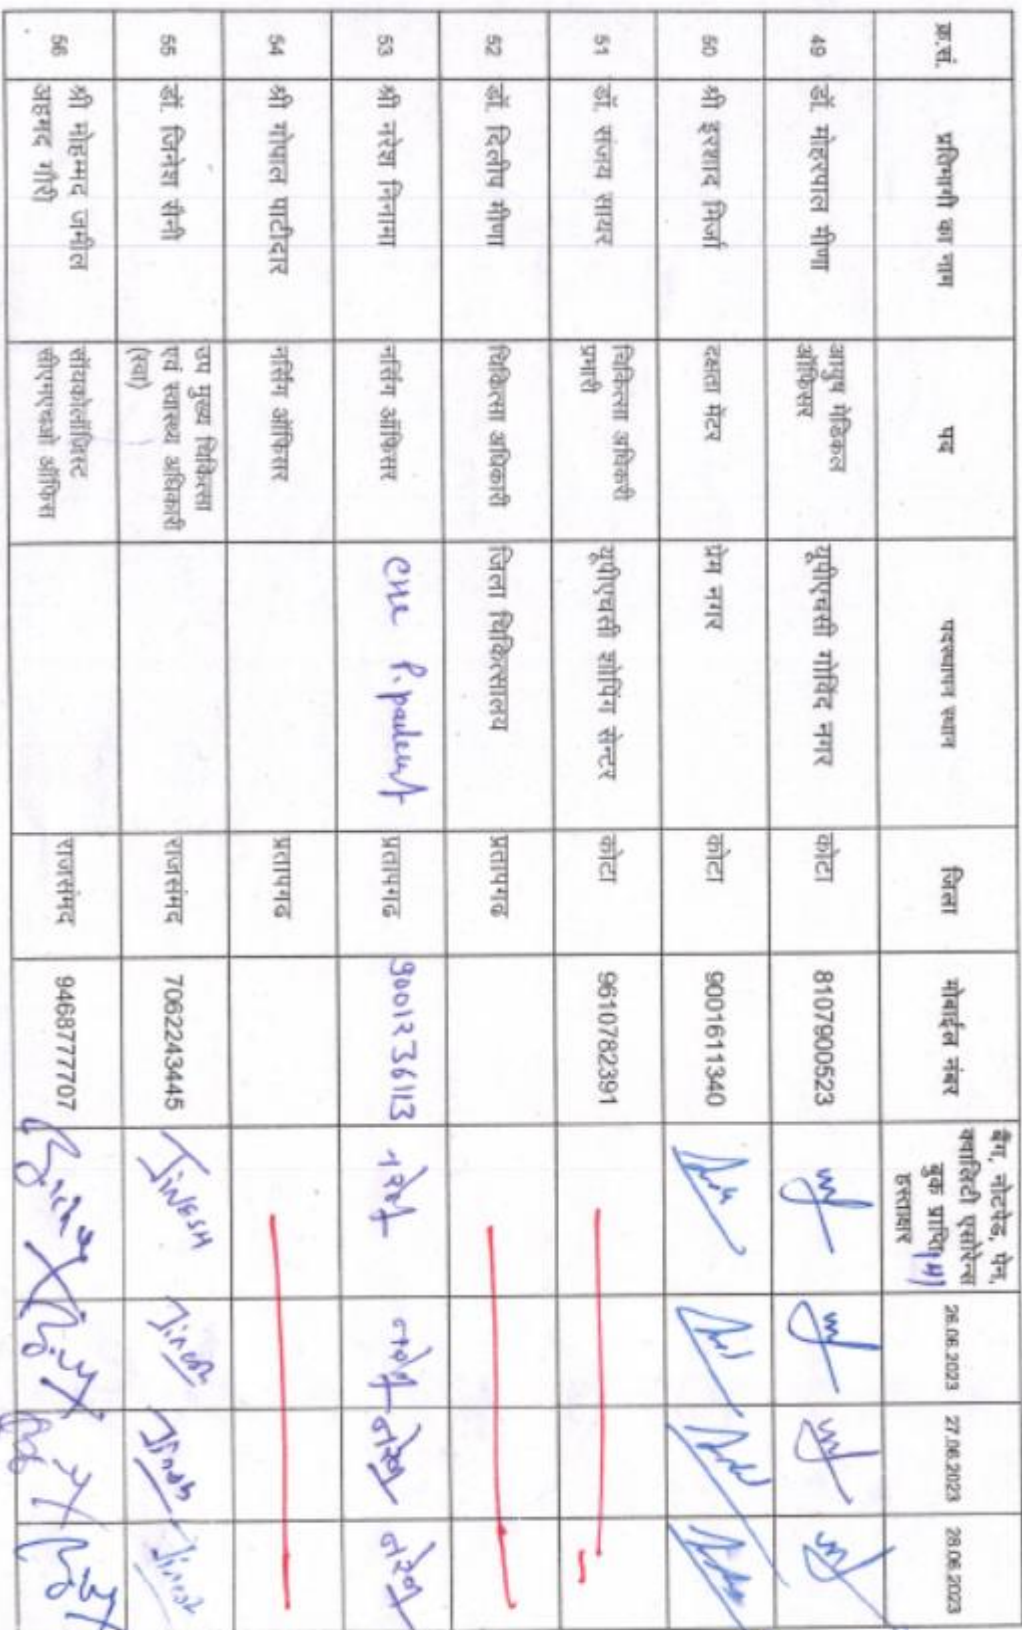 क्र.सं. प्रतिभागी का नाम पद पदस्थापन स्थान जिला मोबाईल नंबर बैग, नोटपेड, पेन, क्वालिटी एसोरेन्स बुक प्राप्ति हस्ताक्षर 26.06.2023 27.06.2023 28.06.2023
49 डॉ. मोहरपाल मीणा आयुष मेडिकल ऑफिसर यूपीएचसी गोविंद नगर कोटा 8107900523
50 श्री इरशाद मिर्जा दक्षता मेंटर प्रेम नगर कोटा 9001611340
51 डॉ. संजय सायर चिकित्सा अधिकारी प्रभारी यूपीएचसी शोपिंग सेन्टर कोटा 9610782391
52 डॉ. दिलीप मीणा चिकित्सा अधिकारी जिला चिकित्सालय प्रतापगढ
53 श्री नरेश निनामा नर्सिंग ऑफिसर प्रतापगढ 9001236113 नरेश नरेश नरेश नरेश
54 श्री गोपाल पाटीदार नर्सिंग ऑफिसर प्रतापगढ
55 डॉ. जिनेश सैनी उप मुख्य चिकित्सा एवं स्वास्थ्य अधिकारी (स्वा) राजसंमद 7062243445 JiNESH
56 श्री मोहम्मद जमील अहमद गौरी सॉयकोलॉजिस्ट सीएमएचओ ऑफिस राजसंमद 9468777707